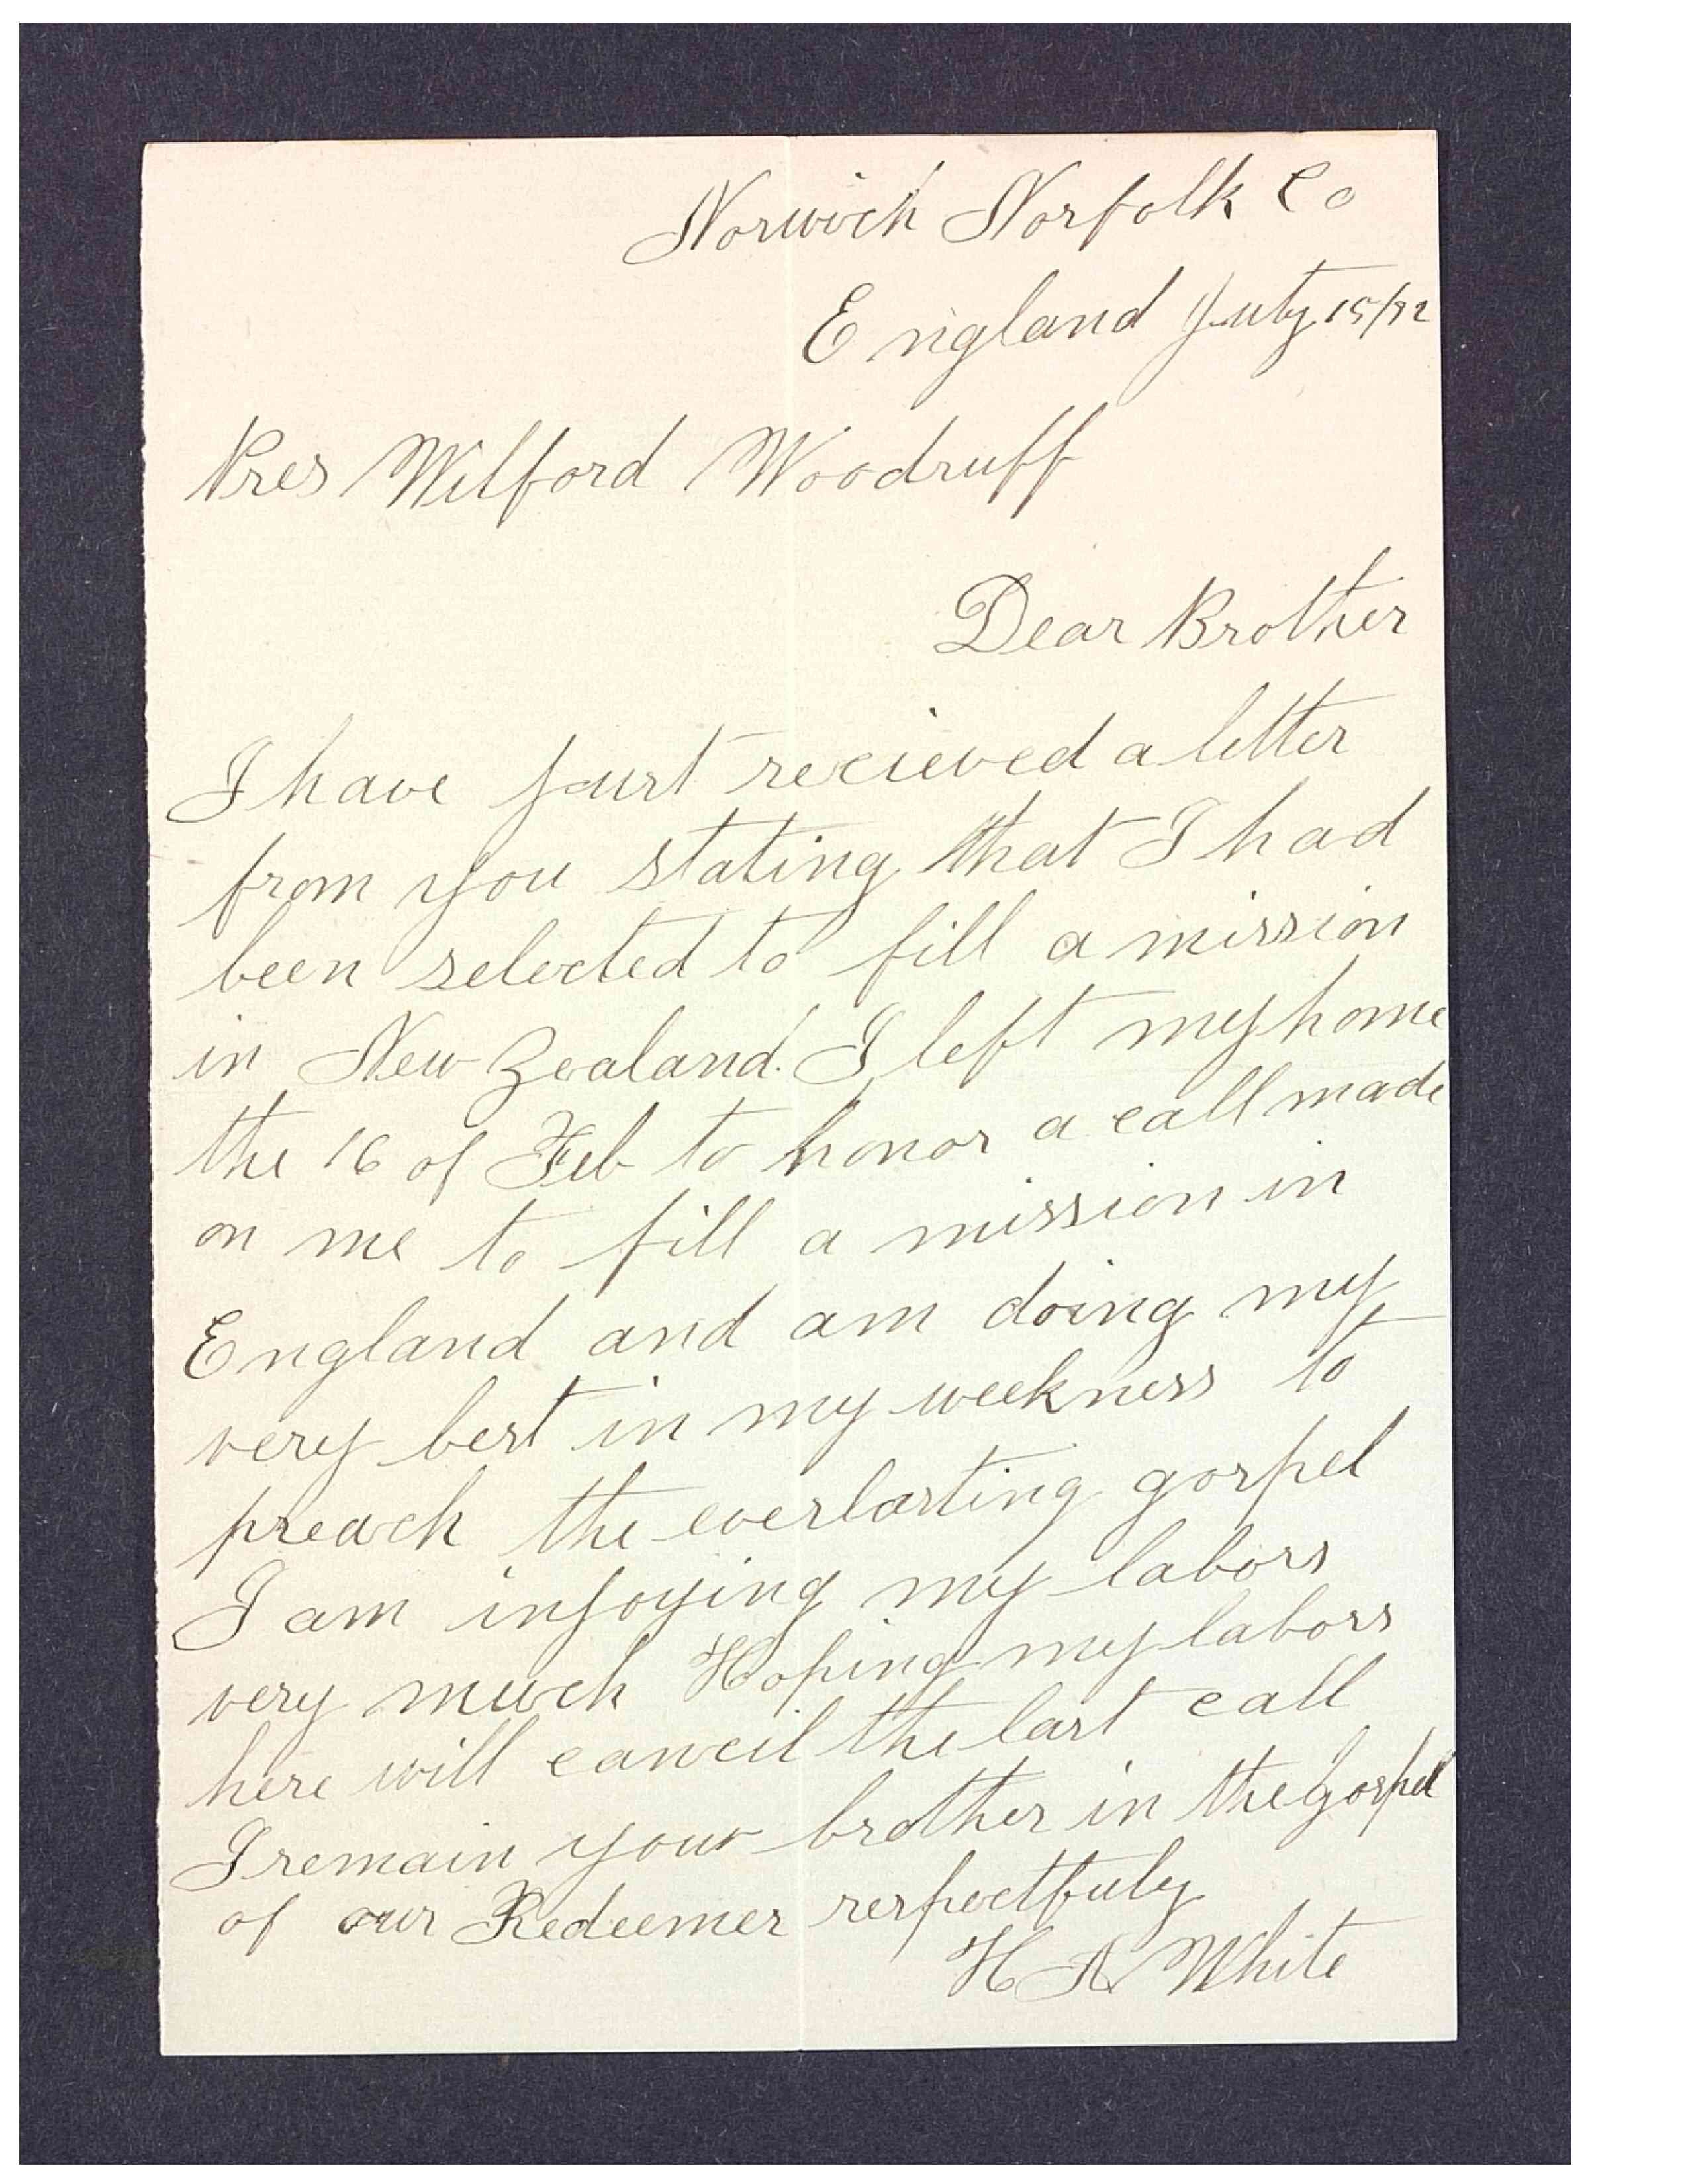 Norwich Norfolk Co
England July 15/92
Pres Wilford Woodruff
Dear Brother
I have just recieved a letter
from you stating that I had
been selected to fill a mission
in New Zealand. I left my home
the 16 of Feb to honor a call made
on me to fill a mission in
England and am doing my
very best in my weekness to
preach the everlasting gospel
I am injoying my labors
very much Hoping my labors
here will cancil the last call
I remain your brother in the gospel
of our Redeemer respectfuly
H A White